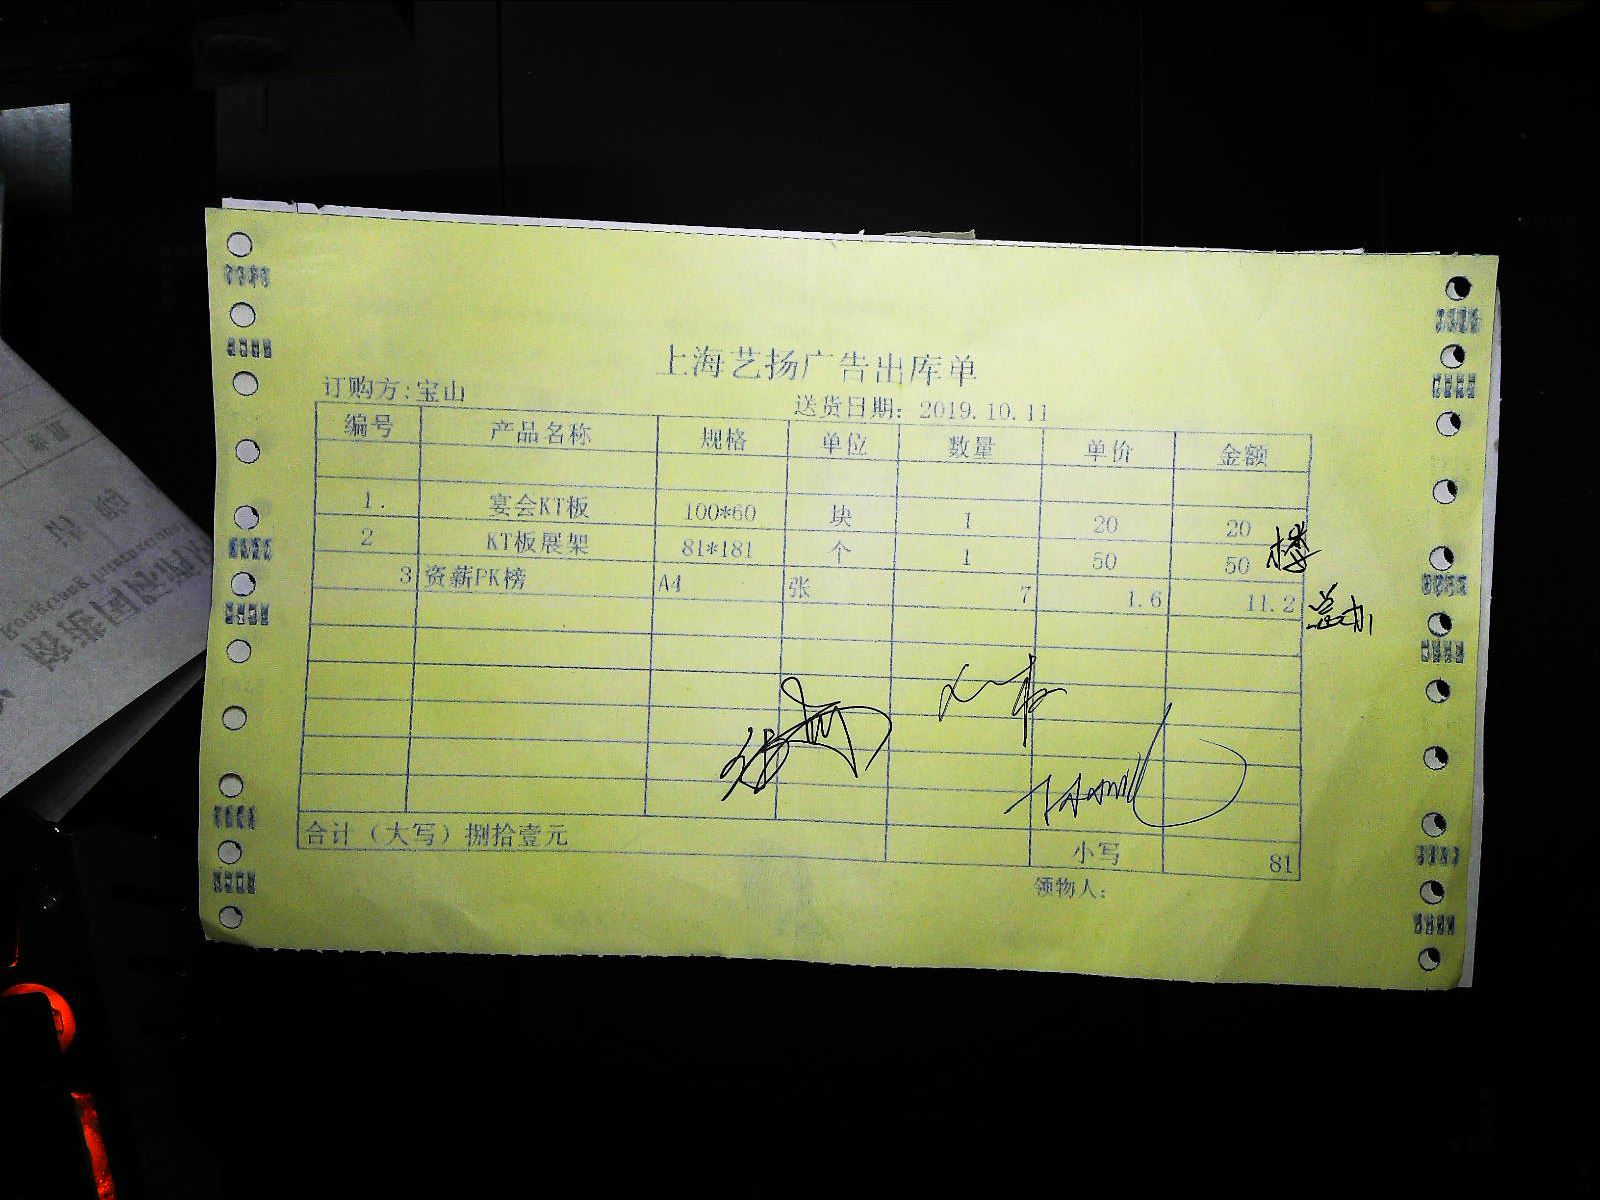 上海艺扬广告出库单
订购方:宝山 送货日期: 2019.10.11
编号 产品名称 规格 单位 数量 单价 金额
1. 宴会KT板 100*60 块 1 20 20
2 KT板展架 81*181 个 1 50 50 楼
3 资薪PK榜 A4 张 7 1.6 11.2 总办
合计（大写）捌拾壹元 小写 81
领物人: